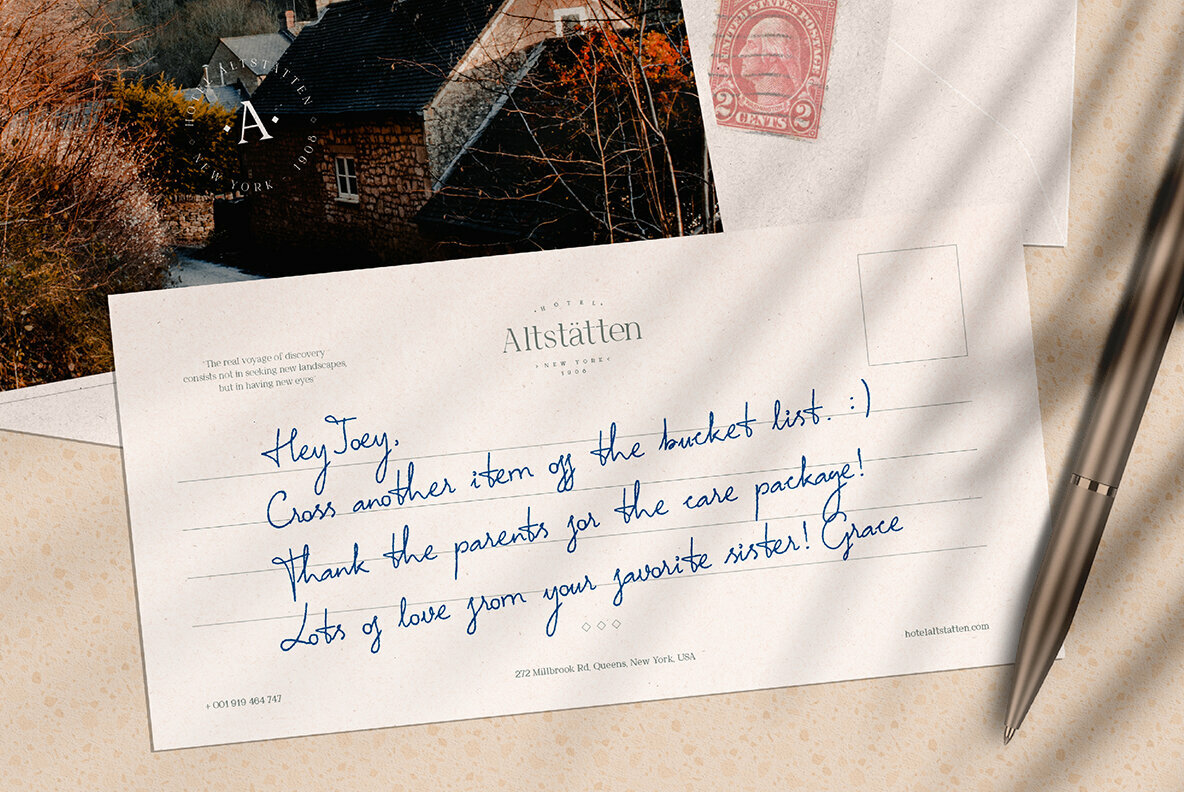 HOTEL ALTSTÄTTEN
A
NEW YORK - 1908
UNITED STATES POSTAGE
WASHINGTON
2 CENTS 2
HOTEL
Altstätten
NEW YORK
1906
"The real voyage of discovery
consists not in seeking new landscapes,
but in having new eyes"
Hey Joey,
Cross another item off the bucket list. :)
Thank the parents for the care package!
Lots of love from your favorite sister! Grace
272 Millbrook Rd, Queens, New York, USA
hotelaltstatten.com
+ 001 919 464 747